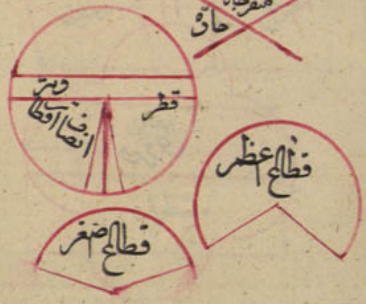 منفرجة
حادة
وتر
قطر
انصاف اقطار
قطاع اعظم
قطاع اصغر